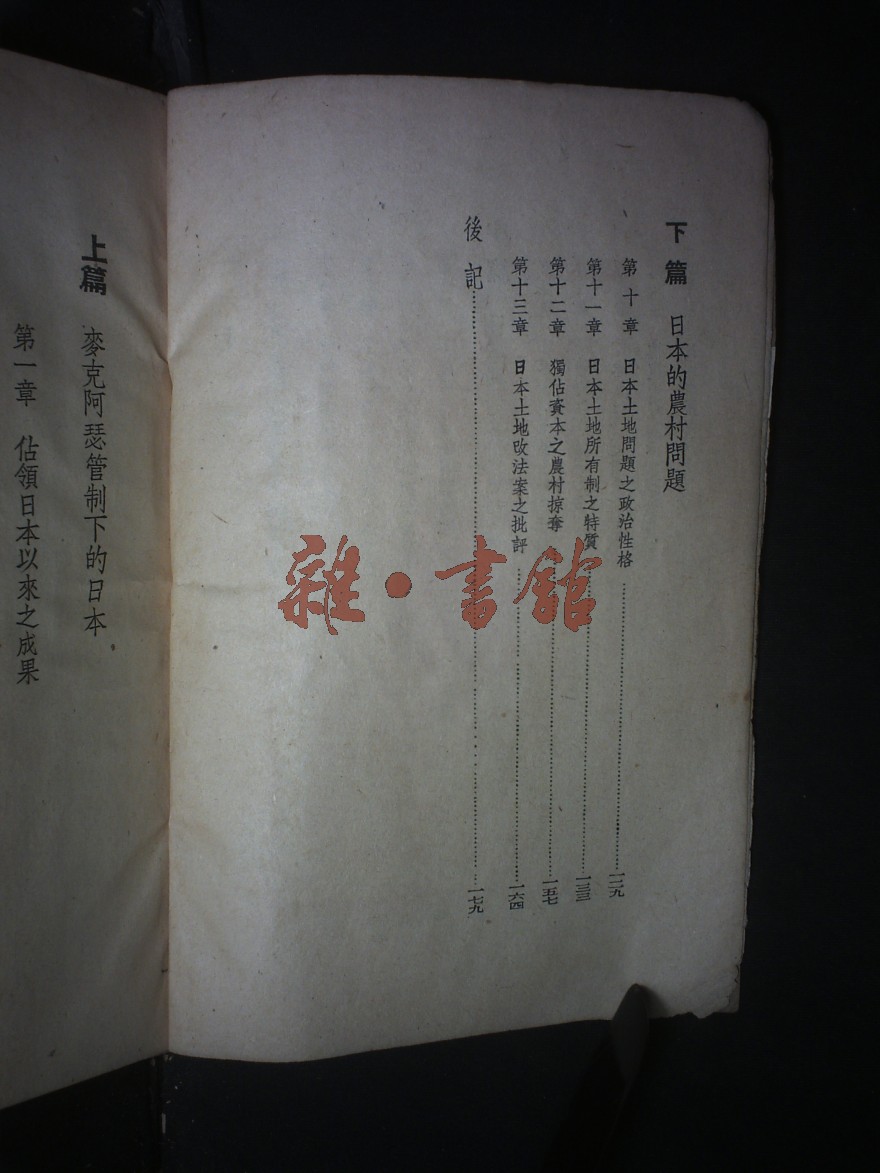 下篇 日本的農村問題
第十章 日本土地問題之政治性格 一二九
第十一章 日本土地所有制之特質 一三三
第十二章 獨佔資本之農村掠奪 一五七
第十三章 日本土地改法案之批評 一六四
後記 一七九
上篇 麥克阿瑟管制下的日本
第一章 佔領日本以來之成果
雜·書館